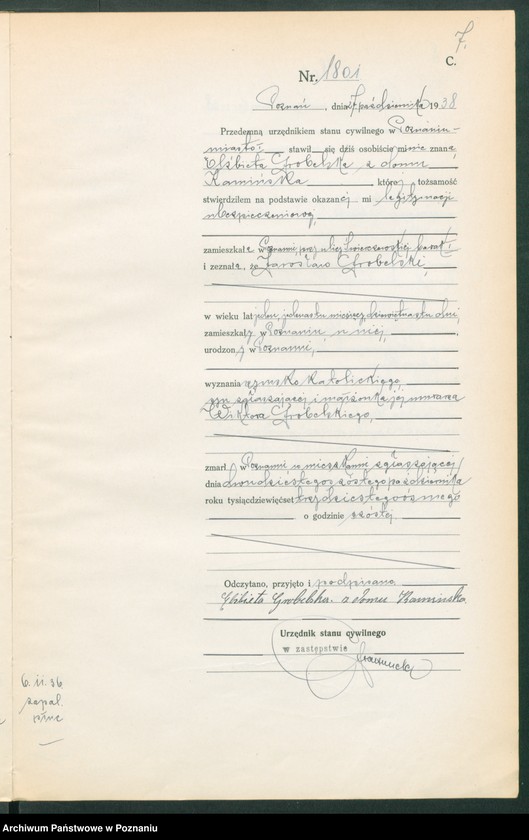 7.
C.
Nr. 1801
Poznań, dnia 27 października 1938
Przedemną urzędnikiem stanu cywilnego w Poznaniu-
miasto stawił się dziś osobiście mi nie znana,
Elżbieta Grobelska z domu
Kamińska, której tożsamość
stwierdziłem na podstawie okazanej mi legitymacji
ubezpieczeniowej,
zamieszkała w Poznaniu, przy ulicy
i zeznała, że Jarosław Grobelski,
w wieku lat jeden, jedenastu miesięcy, dni,
zamieszkały w Poznaniu, u niej,
urodzony w Poznaniu,
wyznania rzymsko katolickiego,
syn zgłaszającej i małżonka jej murarza
Wiktora Grobelskiego,
zmarł w Poznaniu w mieszkaniu zgłaszającej
dnia dwudziestego szóstego października
roku tysiącdziewięćset trzydziestego ósmego
o godzinie szóstej
Odczytano, przyjęto i podpisano
Elżbieta Grobelska. z domu Kamińska
Urzędnik stanu cywilnego
w zastępstwie
6.11.36.
zapal.
płuc
Archiwum Państwowe w Poznaniu